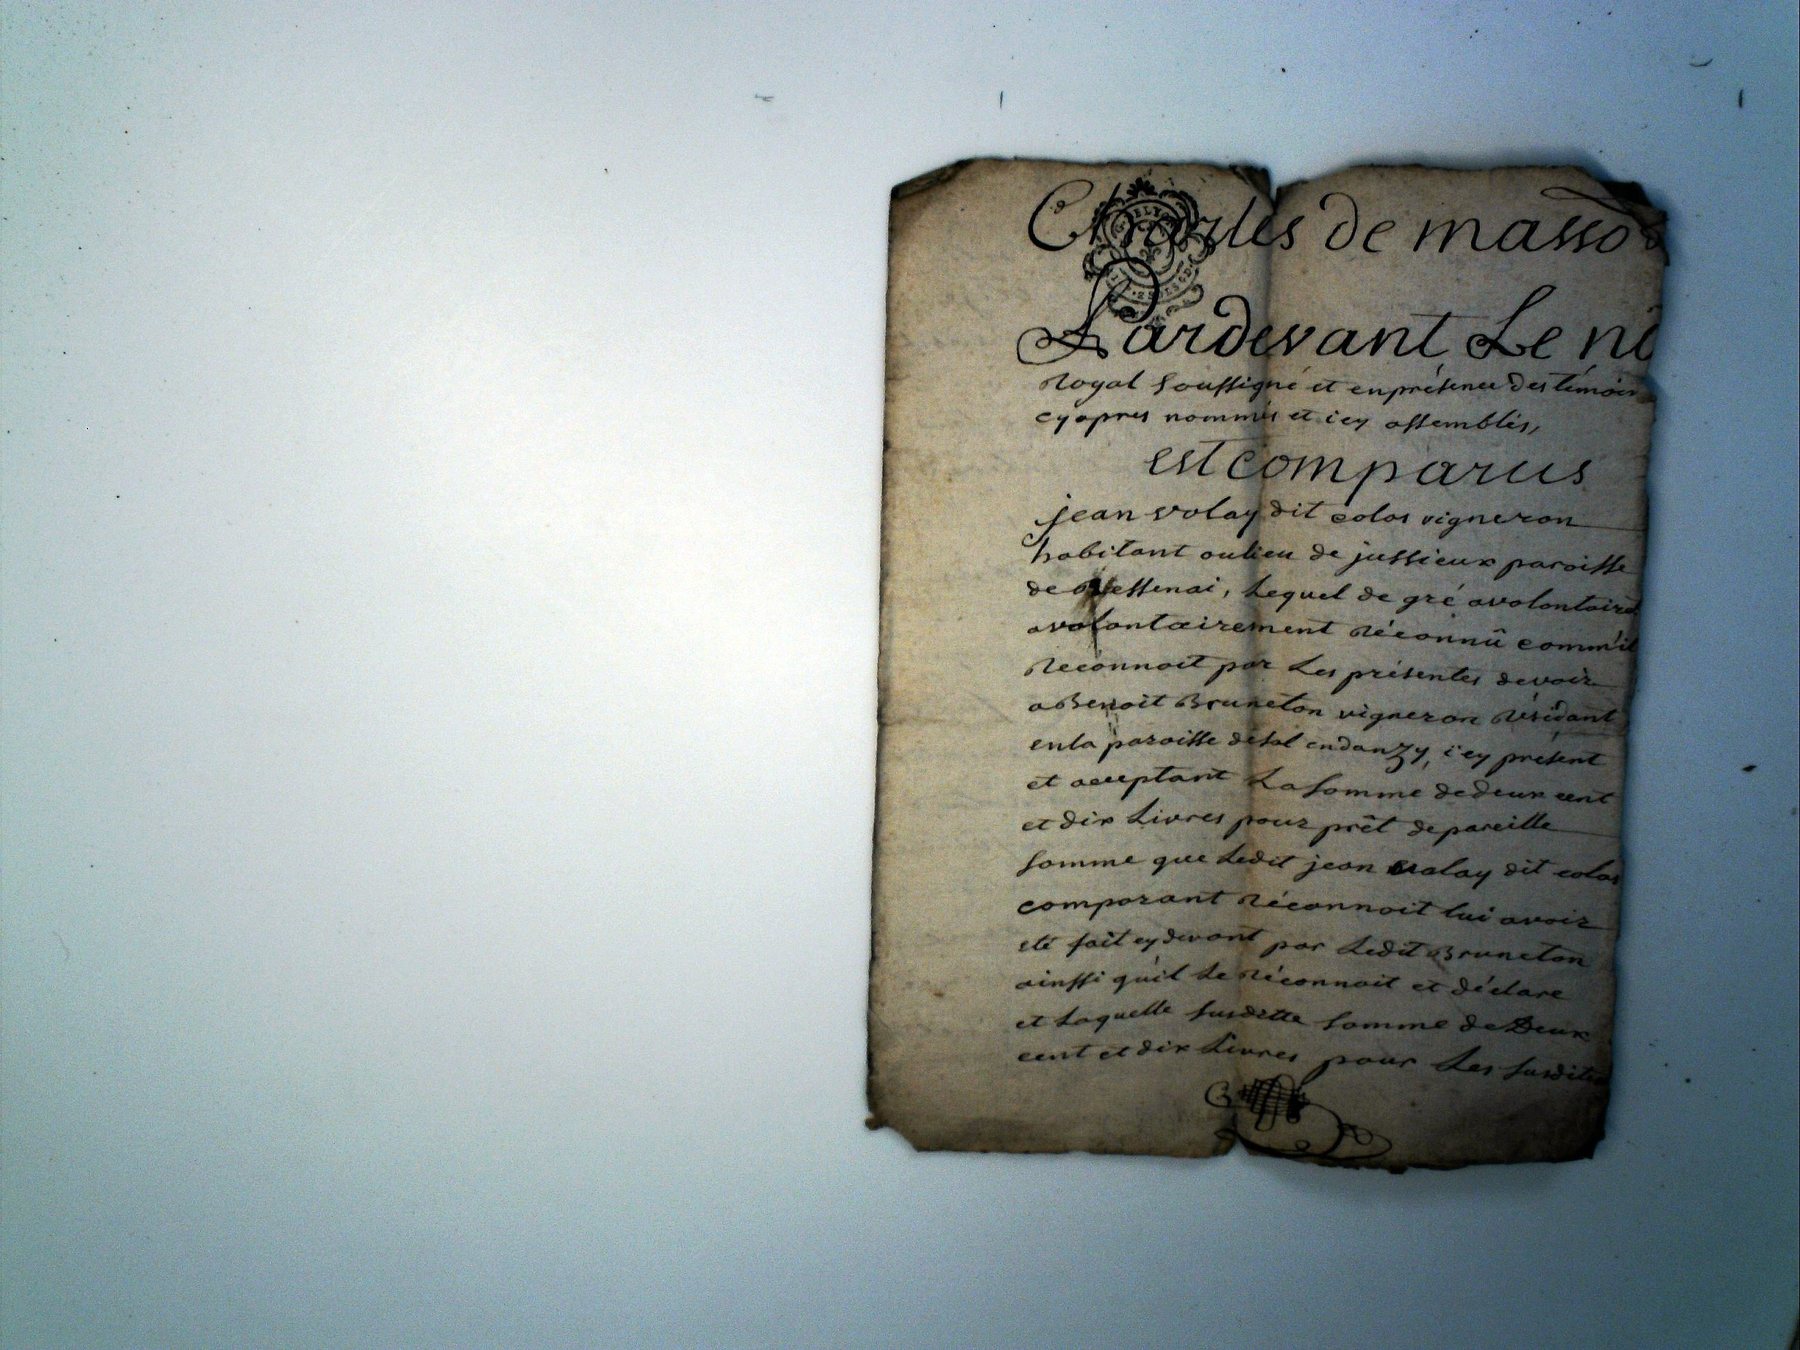 Charles de masso
Pardevant Le no
Royal Soussigné et en présence des témoin
cy apres nommés et icy assemblés,
est comparus
jean volay dit colas vigneron
habitant au lieu de jussieux paroisse
de Bessenai, Lequel de gré a volontaire
a volontairement Réconnû comm'il
Reconnoit par Les présentes devoir
a Benoit Bruneton vigneron Résidant
en la paroisse de sal en danzy, icy présent
et acceptant La somme de deux cent
et dix Livres pour prêt de pareille
somme que Ledit jean valay dit colas
comparant Réconnoit lui avoir
eté fait cy devant par Ledit Bruneton
ainssi qu'il Le Réconnoit et déclare
et Laquelle susditte somme de Deux
cent et dix Livres pour Les susdites